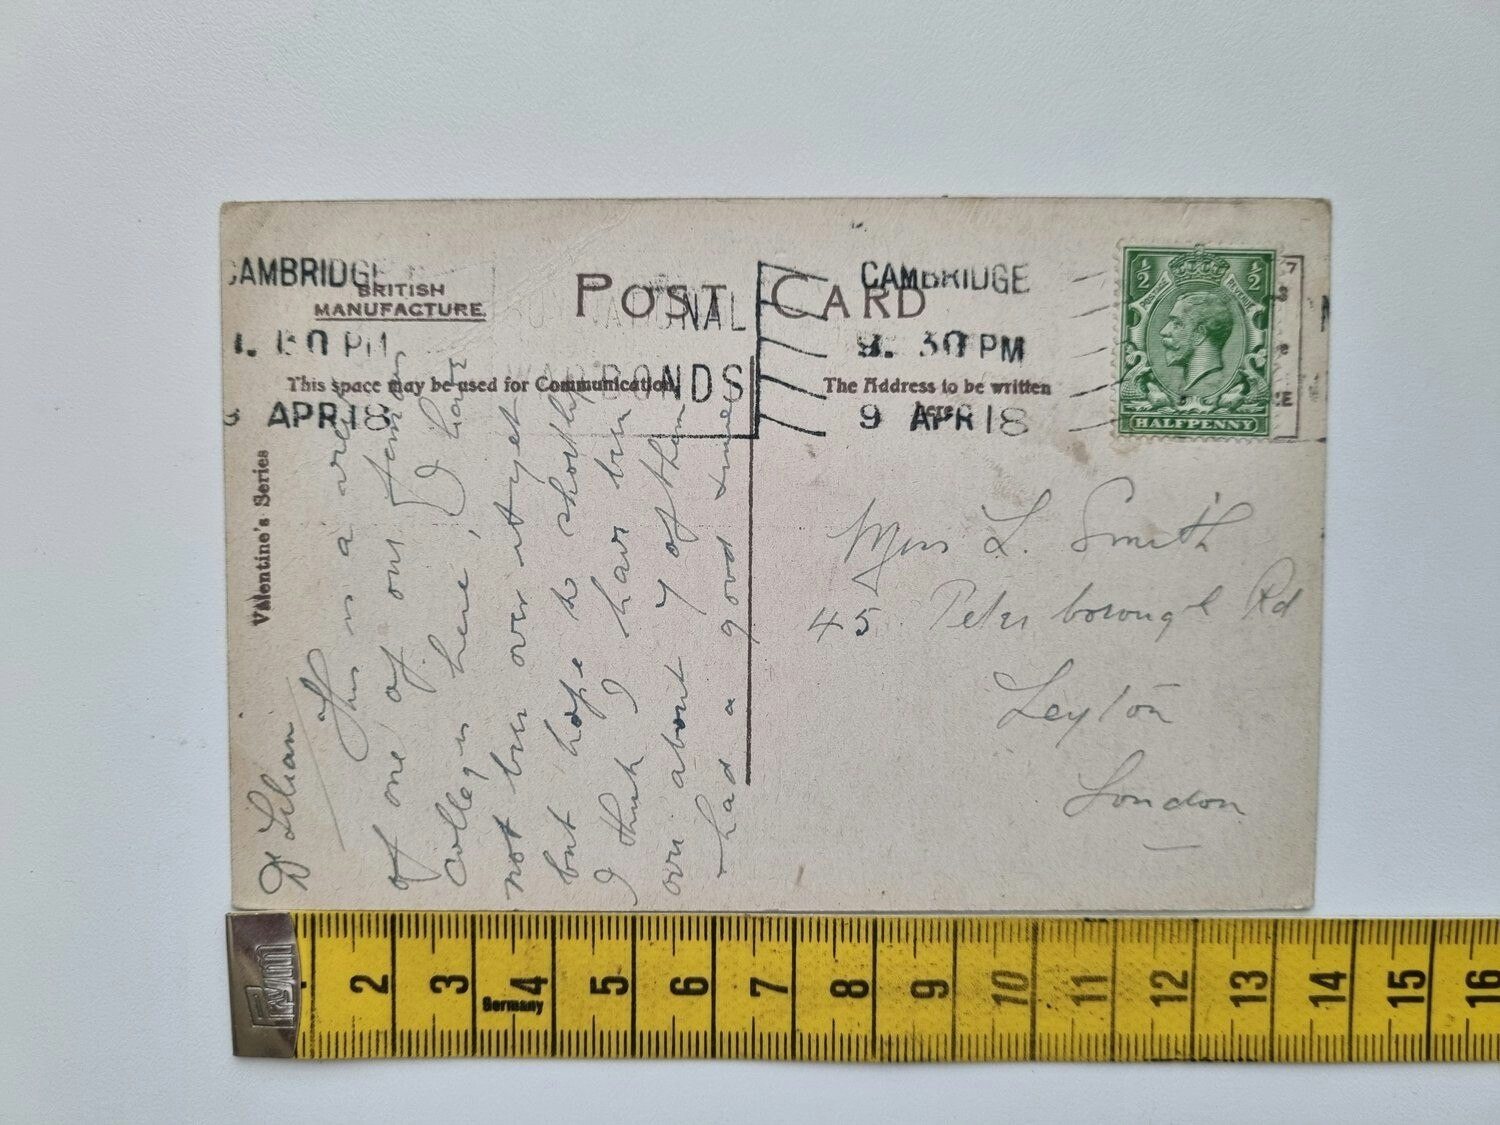 CAMBRIDGE
BRITISH
MANUFACTURE.
POST CARD
CAMBRIDGE
NATIONAL
WAR BONDS
9. 30 PM
This space may be used for Communication.
The Address to be written
here.
APR 18
9 APR 18
HALFPENNY
Valentine's Series
Dr Lilian
This is a
of one of our famous
Colleges here, I have
not been over it yet
but hope to shortly
I think I have been
over about 7 of them
had a good time
Miss L. Smith
45 Peterborough Rd
Leyton
London
2 3 4 5 6 7 8 9 10 11 12 13 14 15 16
Germany
Prym